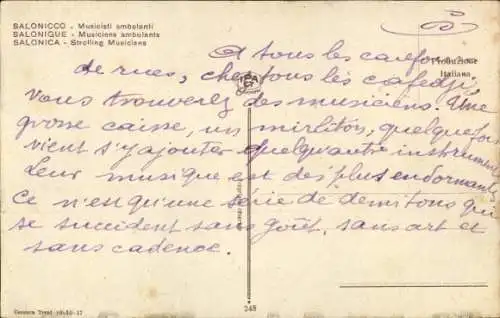 SALONICCO - Musicisti ambolanti
SALONIQUE - Musiciens ambulants
SALONICA - Strolling Musicians
Produzione
Italiana
A tous les carrefours
de rues, chez tous les cafedji,
vous trouverez des musiciens. Une
grosse caisse, un mirliton, quelquefois
vient s'y ajouter quelqu'autre instrument
Leur musique est des plus endormante
Ce n'est qu'une série de demi tons qui
se succèdent sans goût, sans art et
sans cadence.
248